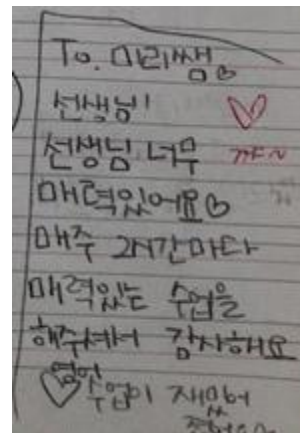 To. 미리쌤♡
선생님!
선생님 너무 꺄~
매력있어요♡
매주 2시간마다
매력있는 수업을
해주셔서 감사해요
영어
♡수업이 재밌어
졌어요